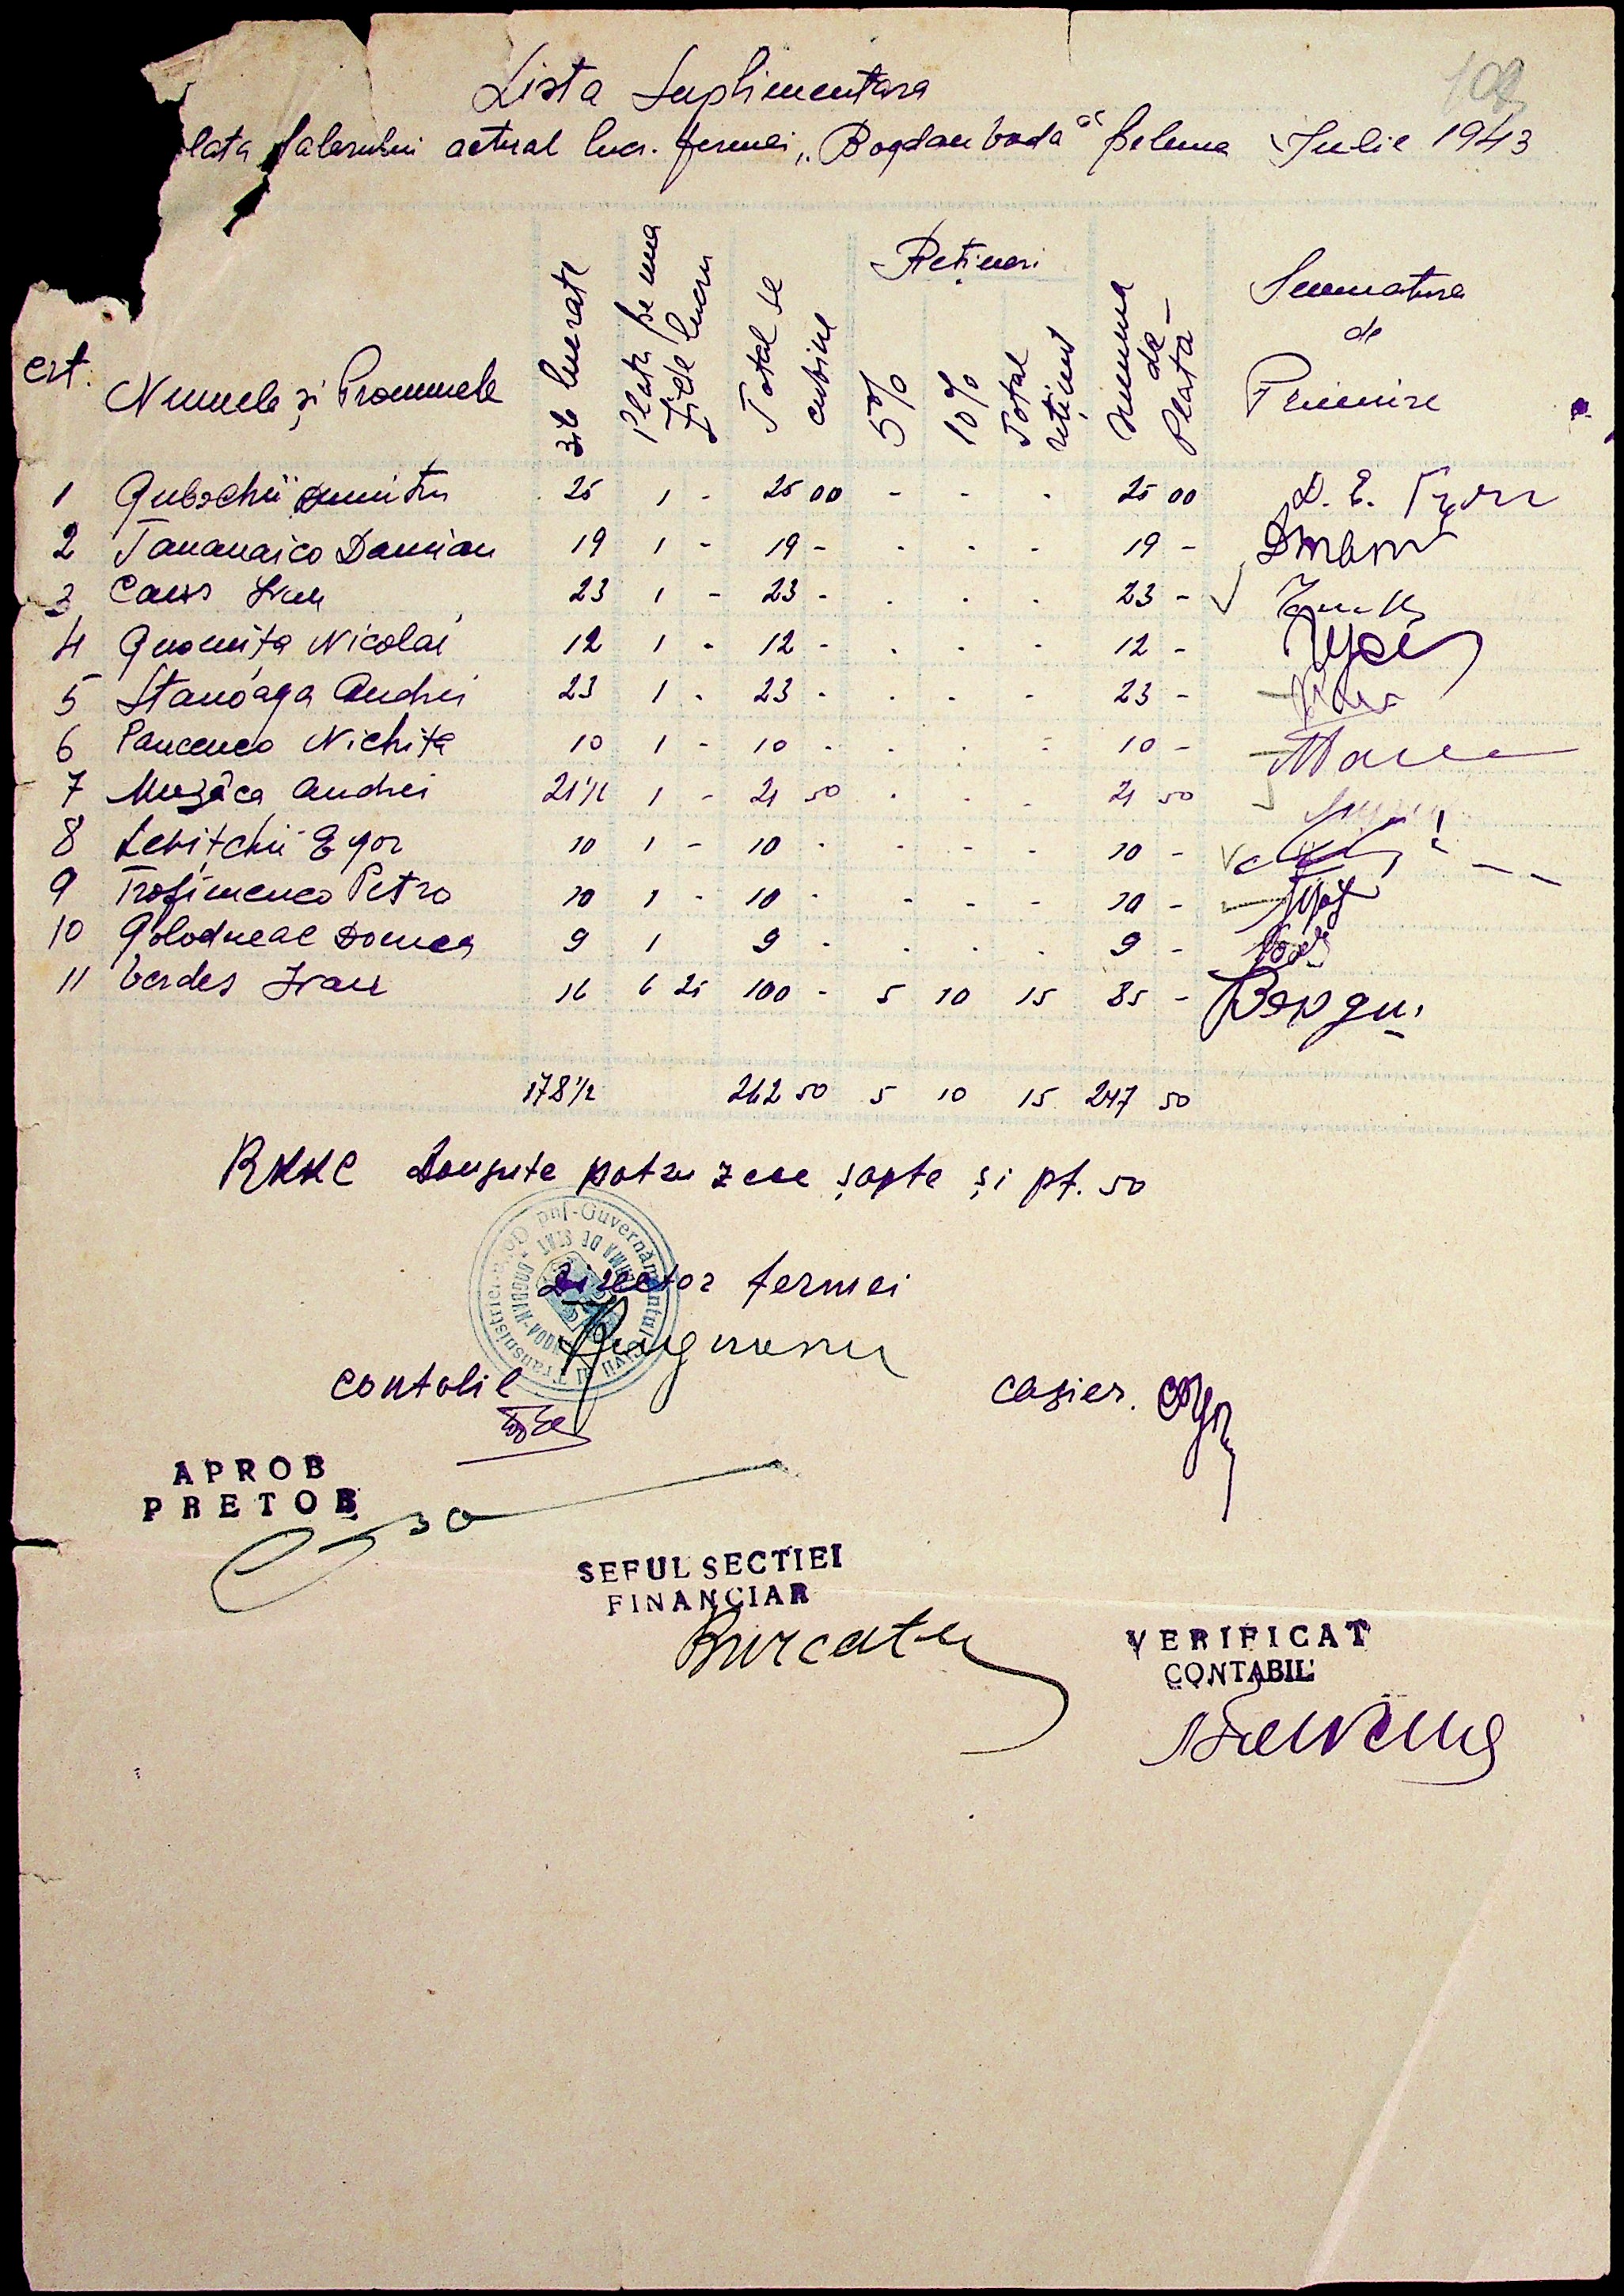 102
Lista Suplimentara
plata salerului actual lucr. fermei „Bogdan Voda“ pe luna Iulie 1943
crt. Numele și Pronumele zile lucrate Plata pe una zi de lucru Total se cubine Rețineri 5% 10% Total reținut Summa de Plata Semnatura de Primire
1 Gubschii Dumitru 25 1 - 25 00 - - - 25 00
2 Tananaico Damian 19 1 - 19 - - - - 19 -
3 Caus Ivan 23 1 - 23 - - - - 23 -
4 Gnomița Nicolai 12 1 - 12 - - - - 12 -
5 Stanoaga Andrei 23 1 - 23 - - - - 23 -
6 Pancenco Nichita 10 1 - 10 - - - - 10 -
7 Muzâca Andrei 21 1/2 1 - 21 50 - - - 21 50
8 Levițchii Egor 10 1 - 10 - - - - 10 -
9 Trofimenco Petro 10 1 - 10 - - - - 10 -
10 Golodneac Domca 9 1 9 - - - - 9 -
11 Verdes Ivan 16 6 25 100 - 5 10 15 85 -
178 1/2 262 50 5 10 15 247 50
RKKC Douasute patru zece șapte și pf. 50
Guvernământul Civil al Transnistriei
Director fermei
Contabil
casier.
APROB
PRETOR
SEFUL SECTIEI
FINANCIAR
VERIFICAT
CONTABIL